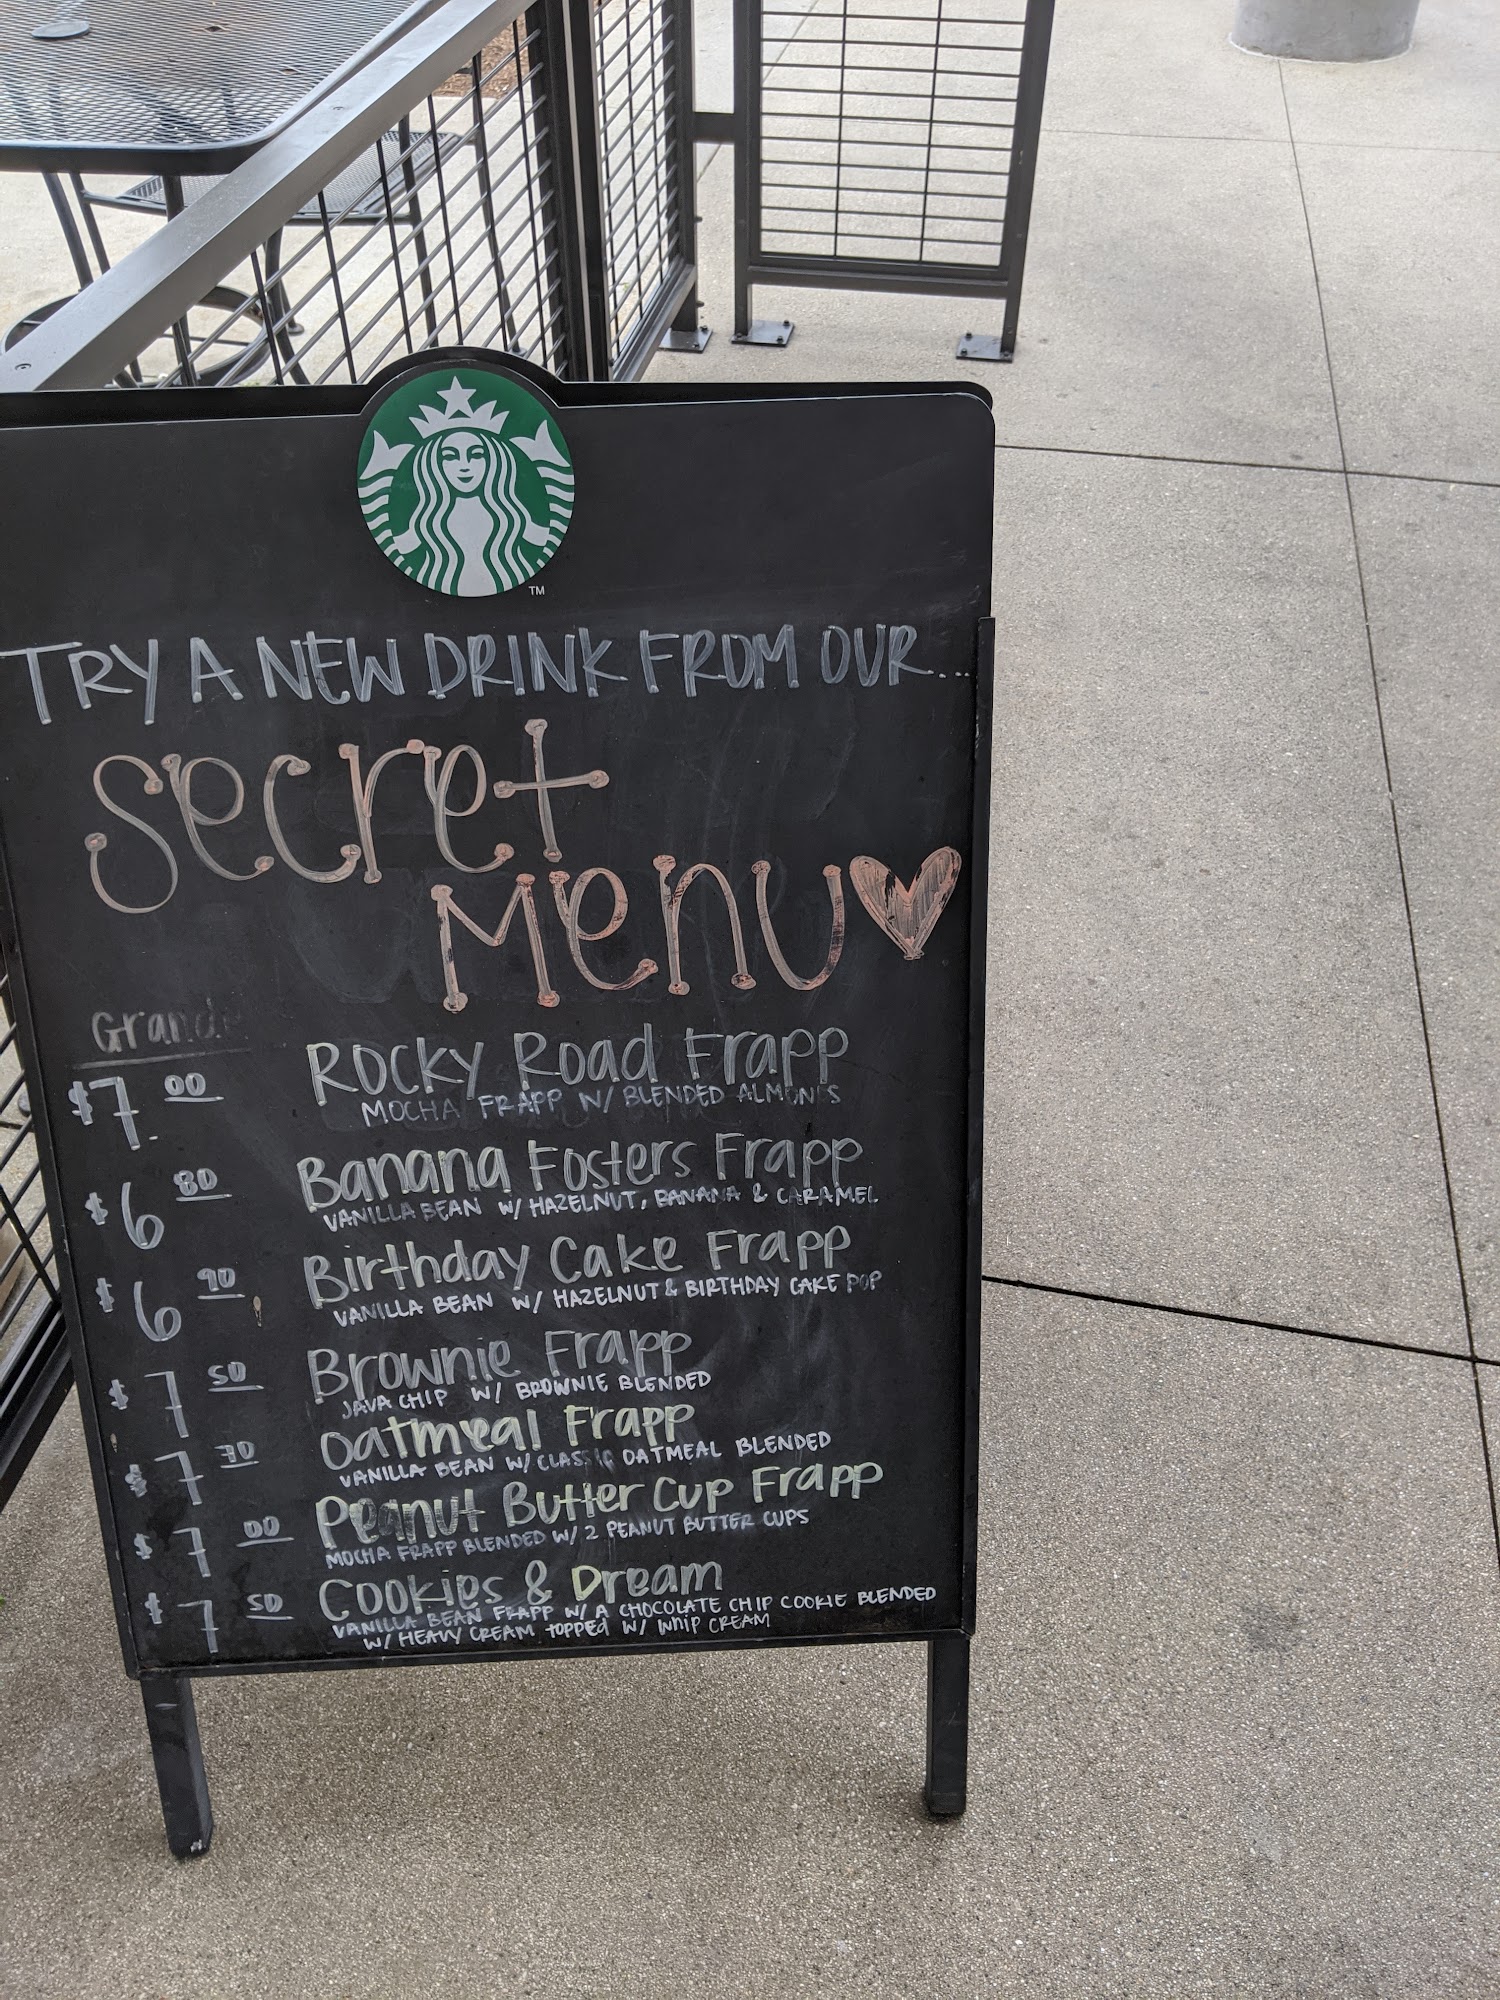 TM
TRY A NEW DRINK FROM OUR...
Secret
Menu
Grande
$7.00 Rocky Road Frapp
MOCHA FRAPP W/ BLENDED ALMONDS
$6 80 Banana Fosters Frapp
VANILLA BEAN W/ HAZELNUT, BANANA & CARAMEL
$6 90 Birthday Cake Frapp
VANILLA BEAN W/ HAZELNUT & BIRTHDAY CAKE POP
$7 50 Brownie Frapp
JAVA CHIP W/ BROWNIE BLENDED
$7 70 Oatmeal Frapp
VANILLA BEAN W/ CLASSIC OATMEAL BLENDED
$7 00 Peanut Butter Cup Frapp
MOCHA FRAPP BLENDED W/ 2 PEANUT BUTTER CUPS
$7 50 Cookies & Dream
VANILLA BEAN FRAPP W/ A CHOCOLATE CHIP COOKIE BLENDED
W/ HEAVY CREAM TOPPED W/ WHIP CREAM